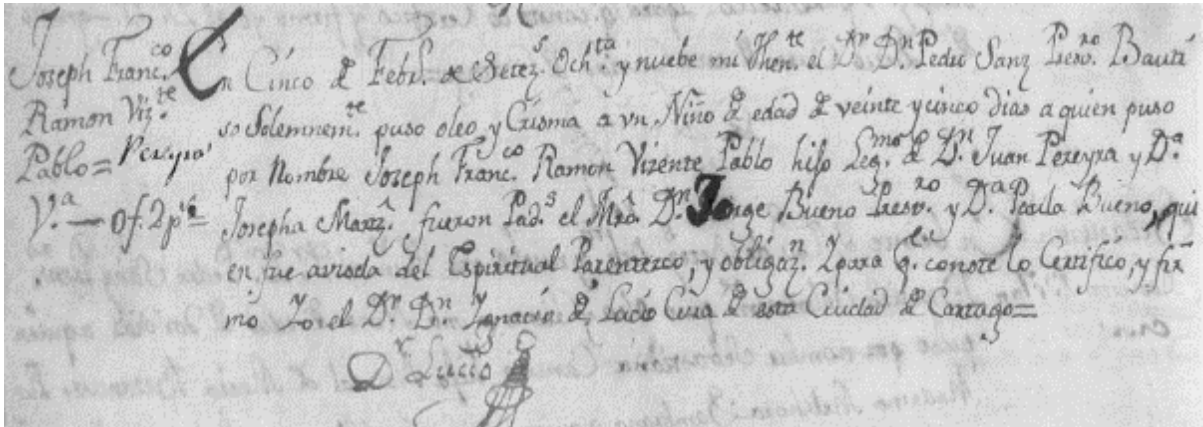 Joseph Franc.co
Ramon Viz.te
Pablo= Pereyra
V.a — of. 2 p.s=
En Cinco de Febr.o de Setez.s Och.ta y nuebe mi Then.te el D.r D.n Pedro Sanz Presv.ro Bauti
so Solemnem.te puso oleo, y Crisma a vn Niño de edad de veinte y cinco dias a quien puso
por Nombre Joseph Franc.co Ramon Vizente Pablo hijo Leg.mo de D.n Juan Pereyra y D.a
Josepha Marz. fueron Pad.s el Mro. D.n Jorge Bueno Presv.ro y D.a Paula Bueno, qui
en fue avisada del Espiritual Parentezco, y obligaz.n Y para q.e conste lo Certifico, y fir
mo Yo el D.r D.n Ygnacio de Cura de esta Ciudad de Cartago=
D.r